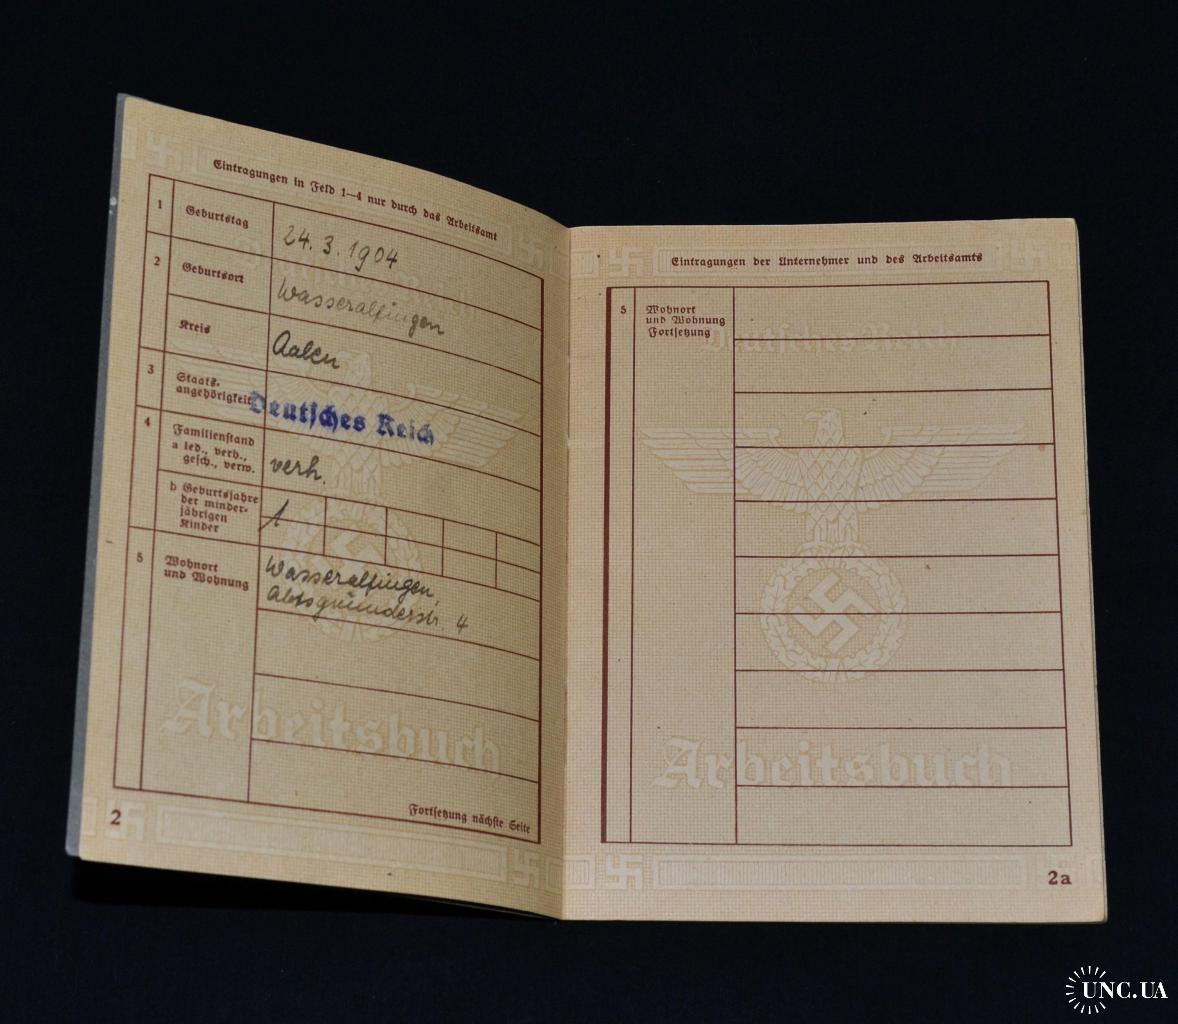 Eintragungen in Feld 1—4 nur durch das Arbeitsamt
1 Geburtstag 24. 3. 1904
2 Geburtsort Wasseralfingen
Kreis Aalen
3 Staats-
angehörigkeit Deutsches Reich
4 Familienstand
a led., verh.,
gesch., verw. verh.
b Geburtsjahre
der minder-
jährigen
Kinder 1
5 Wohnort
und Wohnung Wasseralfingen,
Abtsgmünderstr. 4
Deutsches Reich
Arbeitsbuch
Fortsetzung nächste Seite
2
Eintragungen der Unternehmer und des Arbeitsamts
5 Wohnort
und Wohnung
Fortsetzung
Deutsches Reich
Arbeitsbuch
2a
UNC.UA